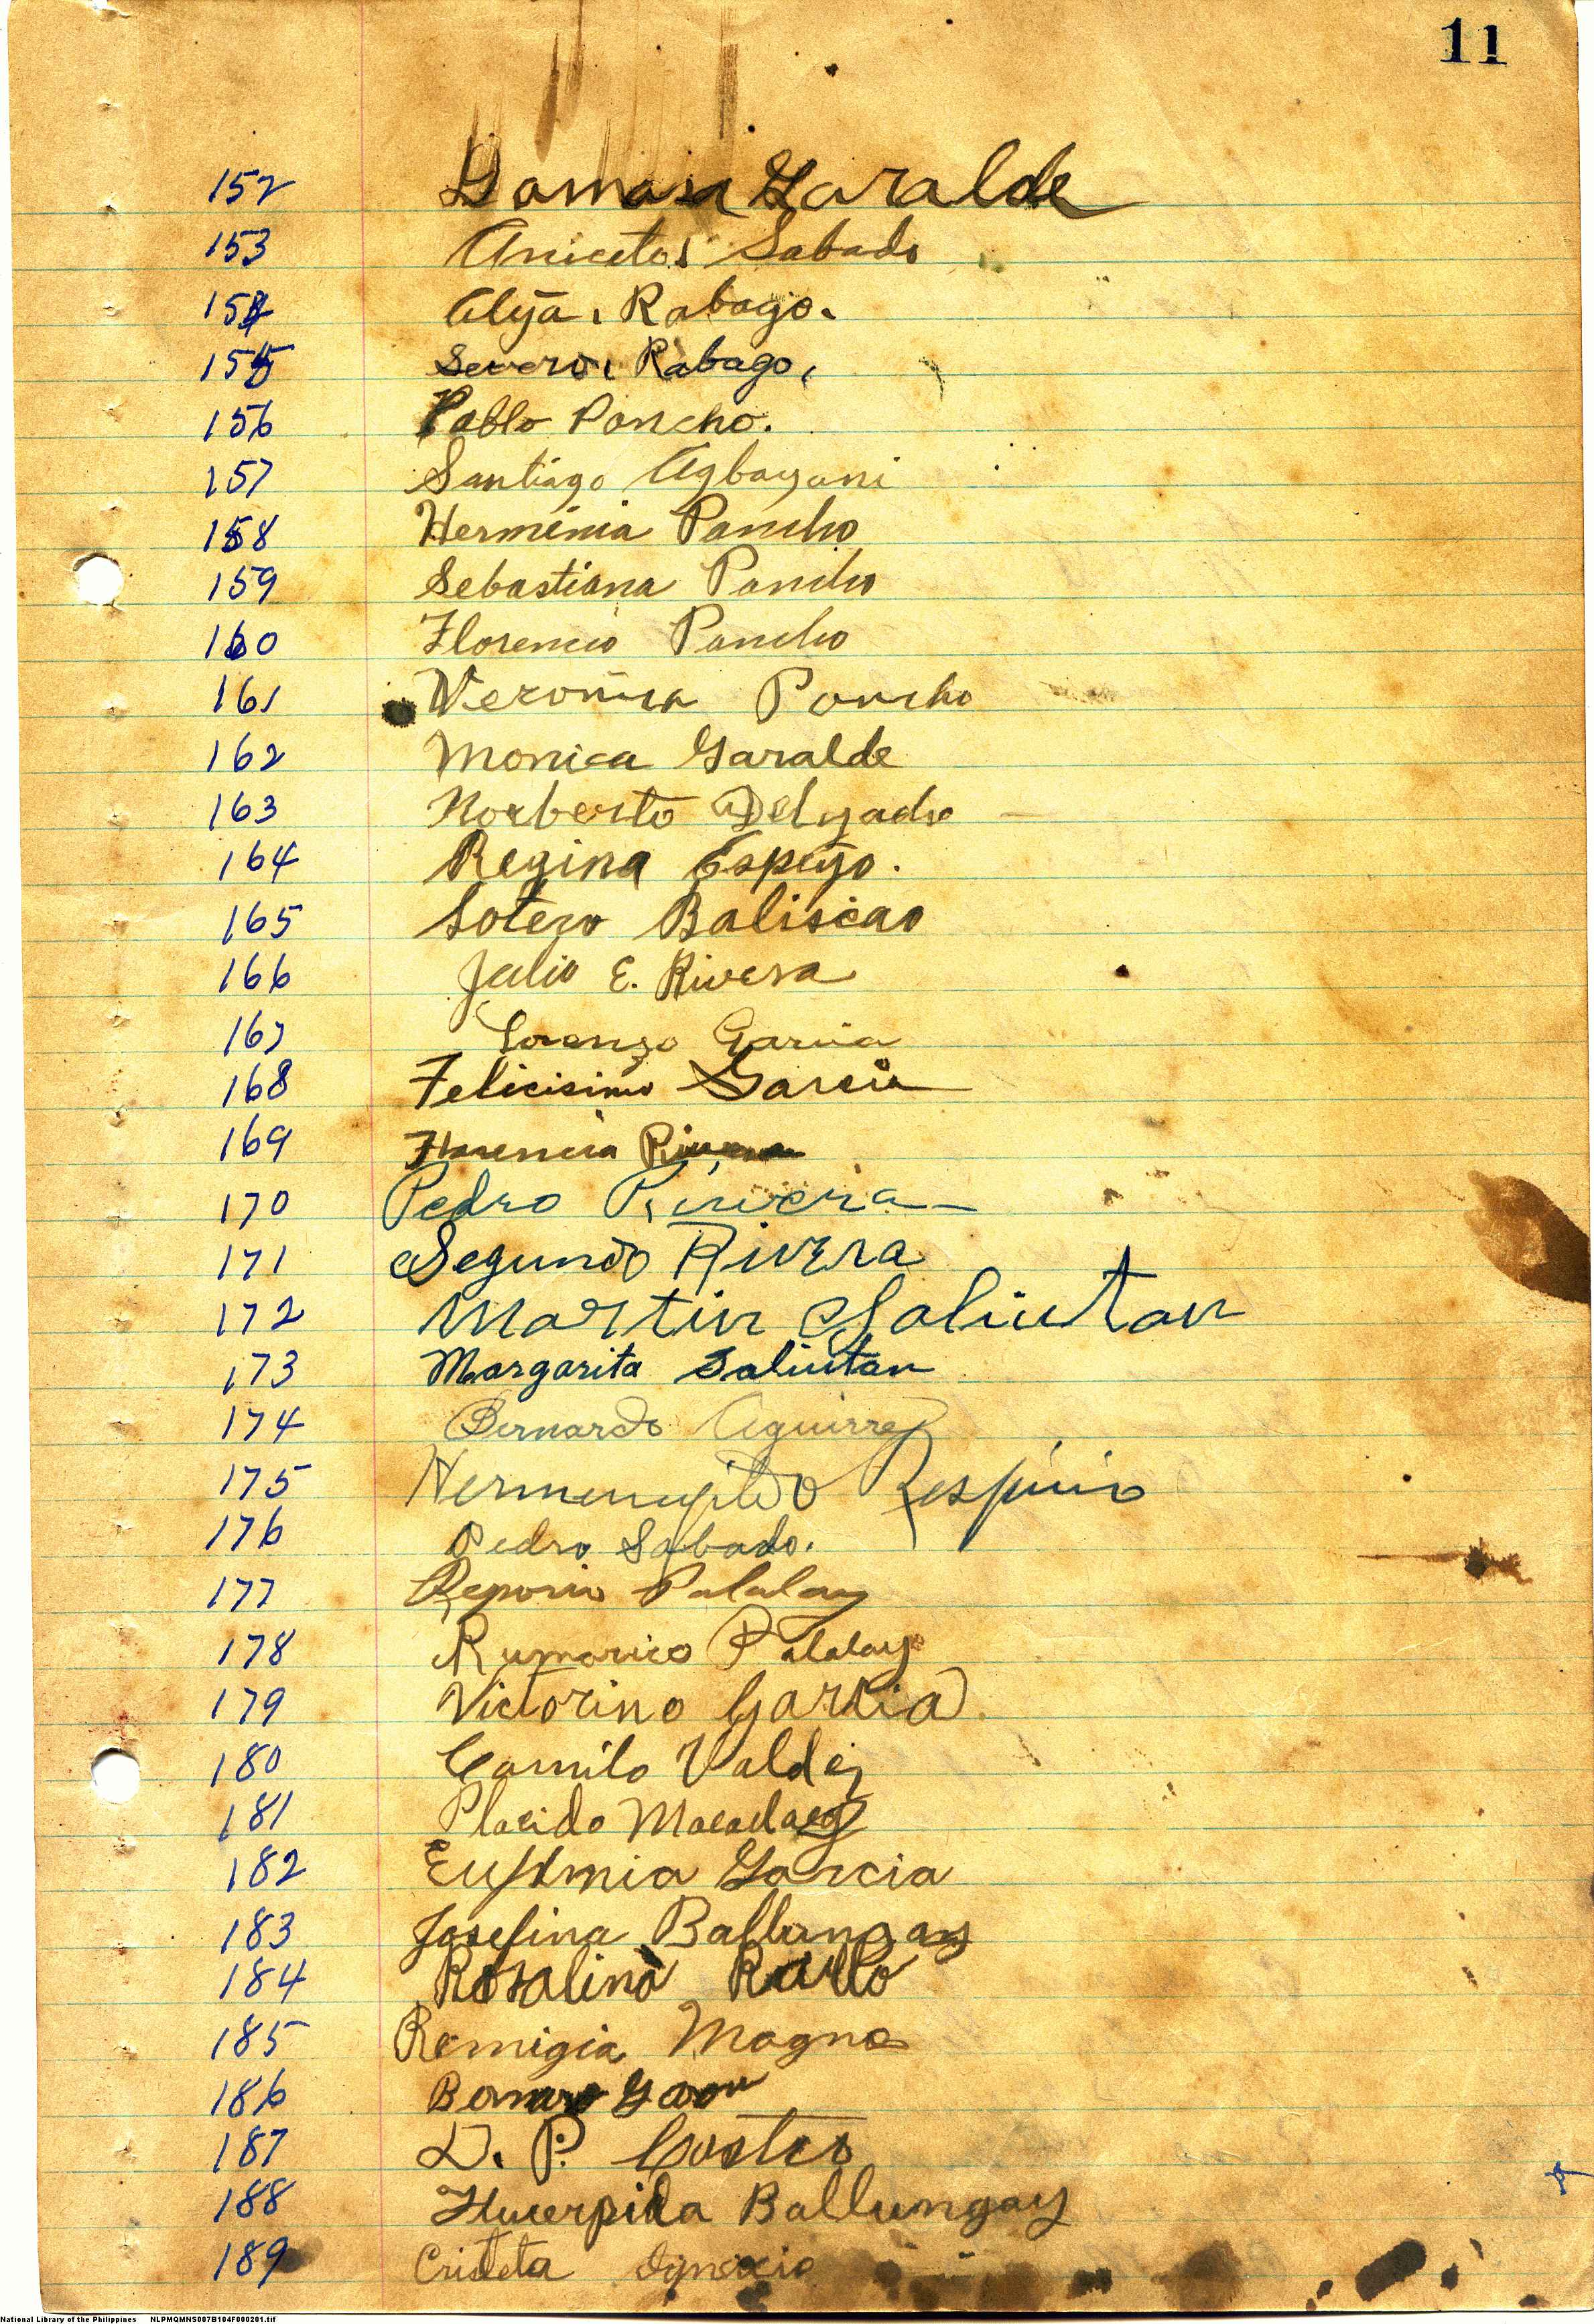 11
152 Damasa Garalde
153 Anicetos Sabado
154 Aleja. Rabago.
155 Severo. Rabago,
156 Pablo Poncho.
157 Santiago Agbayani
158 Herminia Pancho
159 Sebastiana Pancho
160 Florencio Pancho
161 Veronica Poncho
162 Monica Garalde
163 Norberto Delgado
164 Regina Espejo.
165 Sotero Baliscao
166 Julio E. Rivera
167 Lorenzo Garcia
168 Felicisimo Garcia
169 Florencia Rivera
170 Pedro Rivera
171 Segundo Rivera
172 Martin Saliutan
173 Margarita Saliutan
174 Bernardo Aguirre
175 Hermenegildo Respicio
176 Pedro Sabado.
177 Palalay
178 Rumarico Palalay
179 Victorino Garcia
180 Camilo Valdez
181 Placido Macadaeg
182 Eufemia Garcia
183 Josefina Ballungay
184 Rosalina
185 Remigia Magno
186
187 D. P. Costes
188 Ballungay
189 Criteta Ignacio
National Library of the Philippines NLPMQMNS007B104F000201.tif